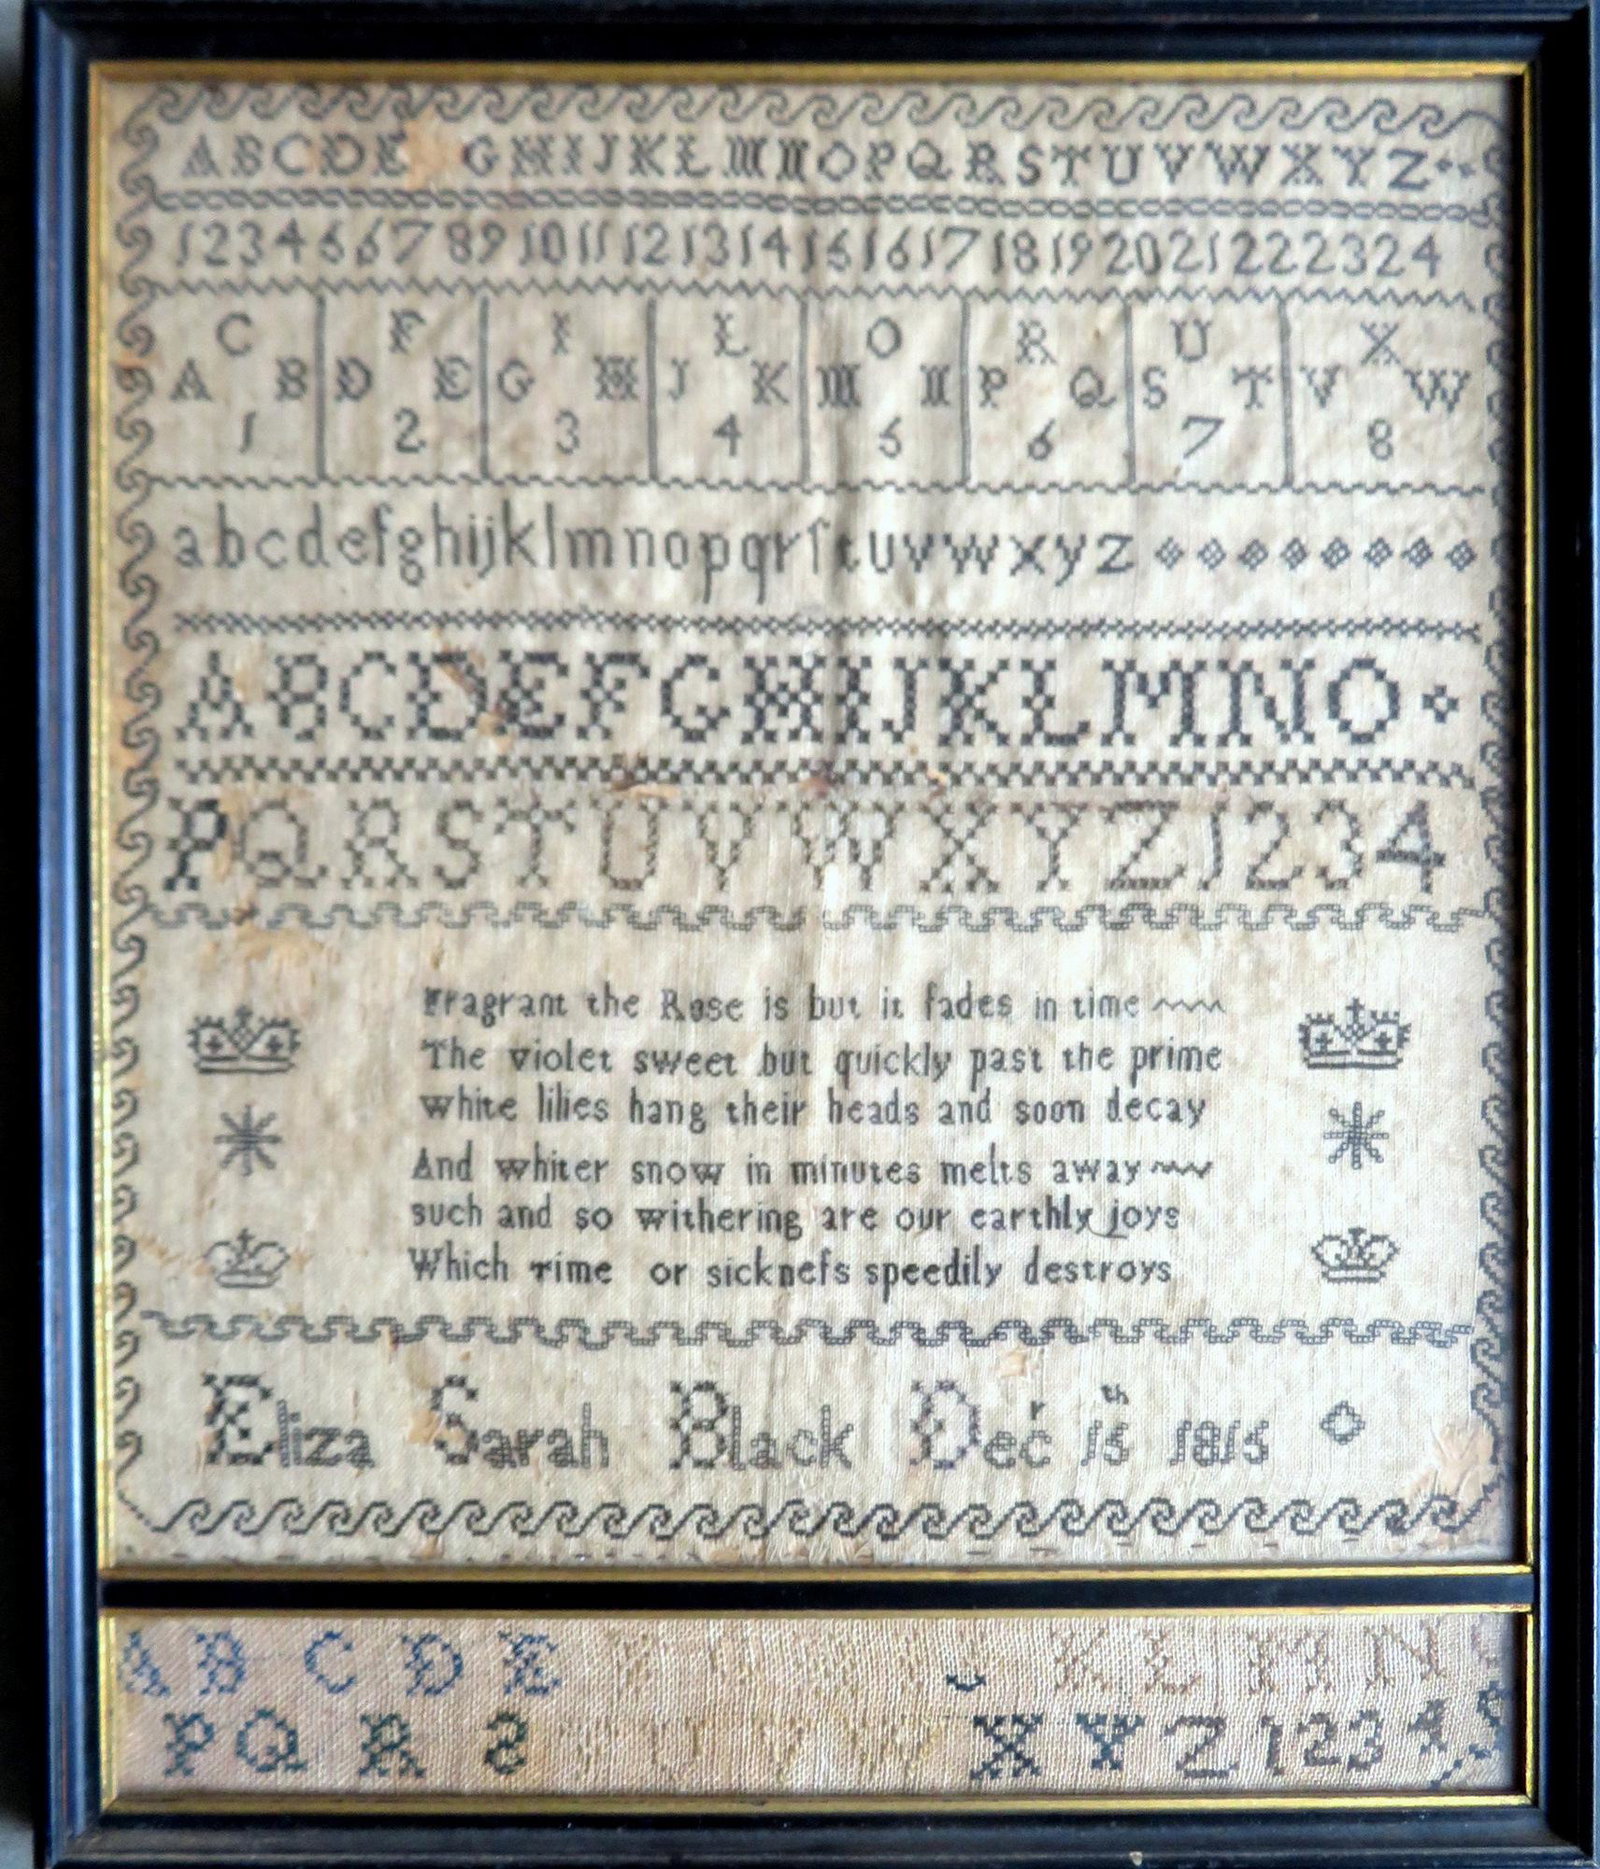 ABCDE GHIJKLMNOPQRSTUVWXYZ
123456789101112131415161718192021222324
C F I L O R U X
A B D E G H J K M N P Q S T V W
1 2 3 4 5 6 7 8
abcdefghijklmnopqrſtuvwxyz
ABCDEFGHIJKLMNO
PQRSTUVWXYZ1234
Fragrant the Rose is but it fades in time
The violet sweet but quickly past the prime
white lilies hang their heads and soon decay
And whiter snow in minutes melts away
such and so withering are our earthly joys
Which Time or sickneſs speedily destroys
Eliza Sarah Black Decr 15th 1815
A B C D E J K L M N
P Q R S U V W X Y Z 1 2 3 4 5